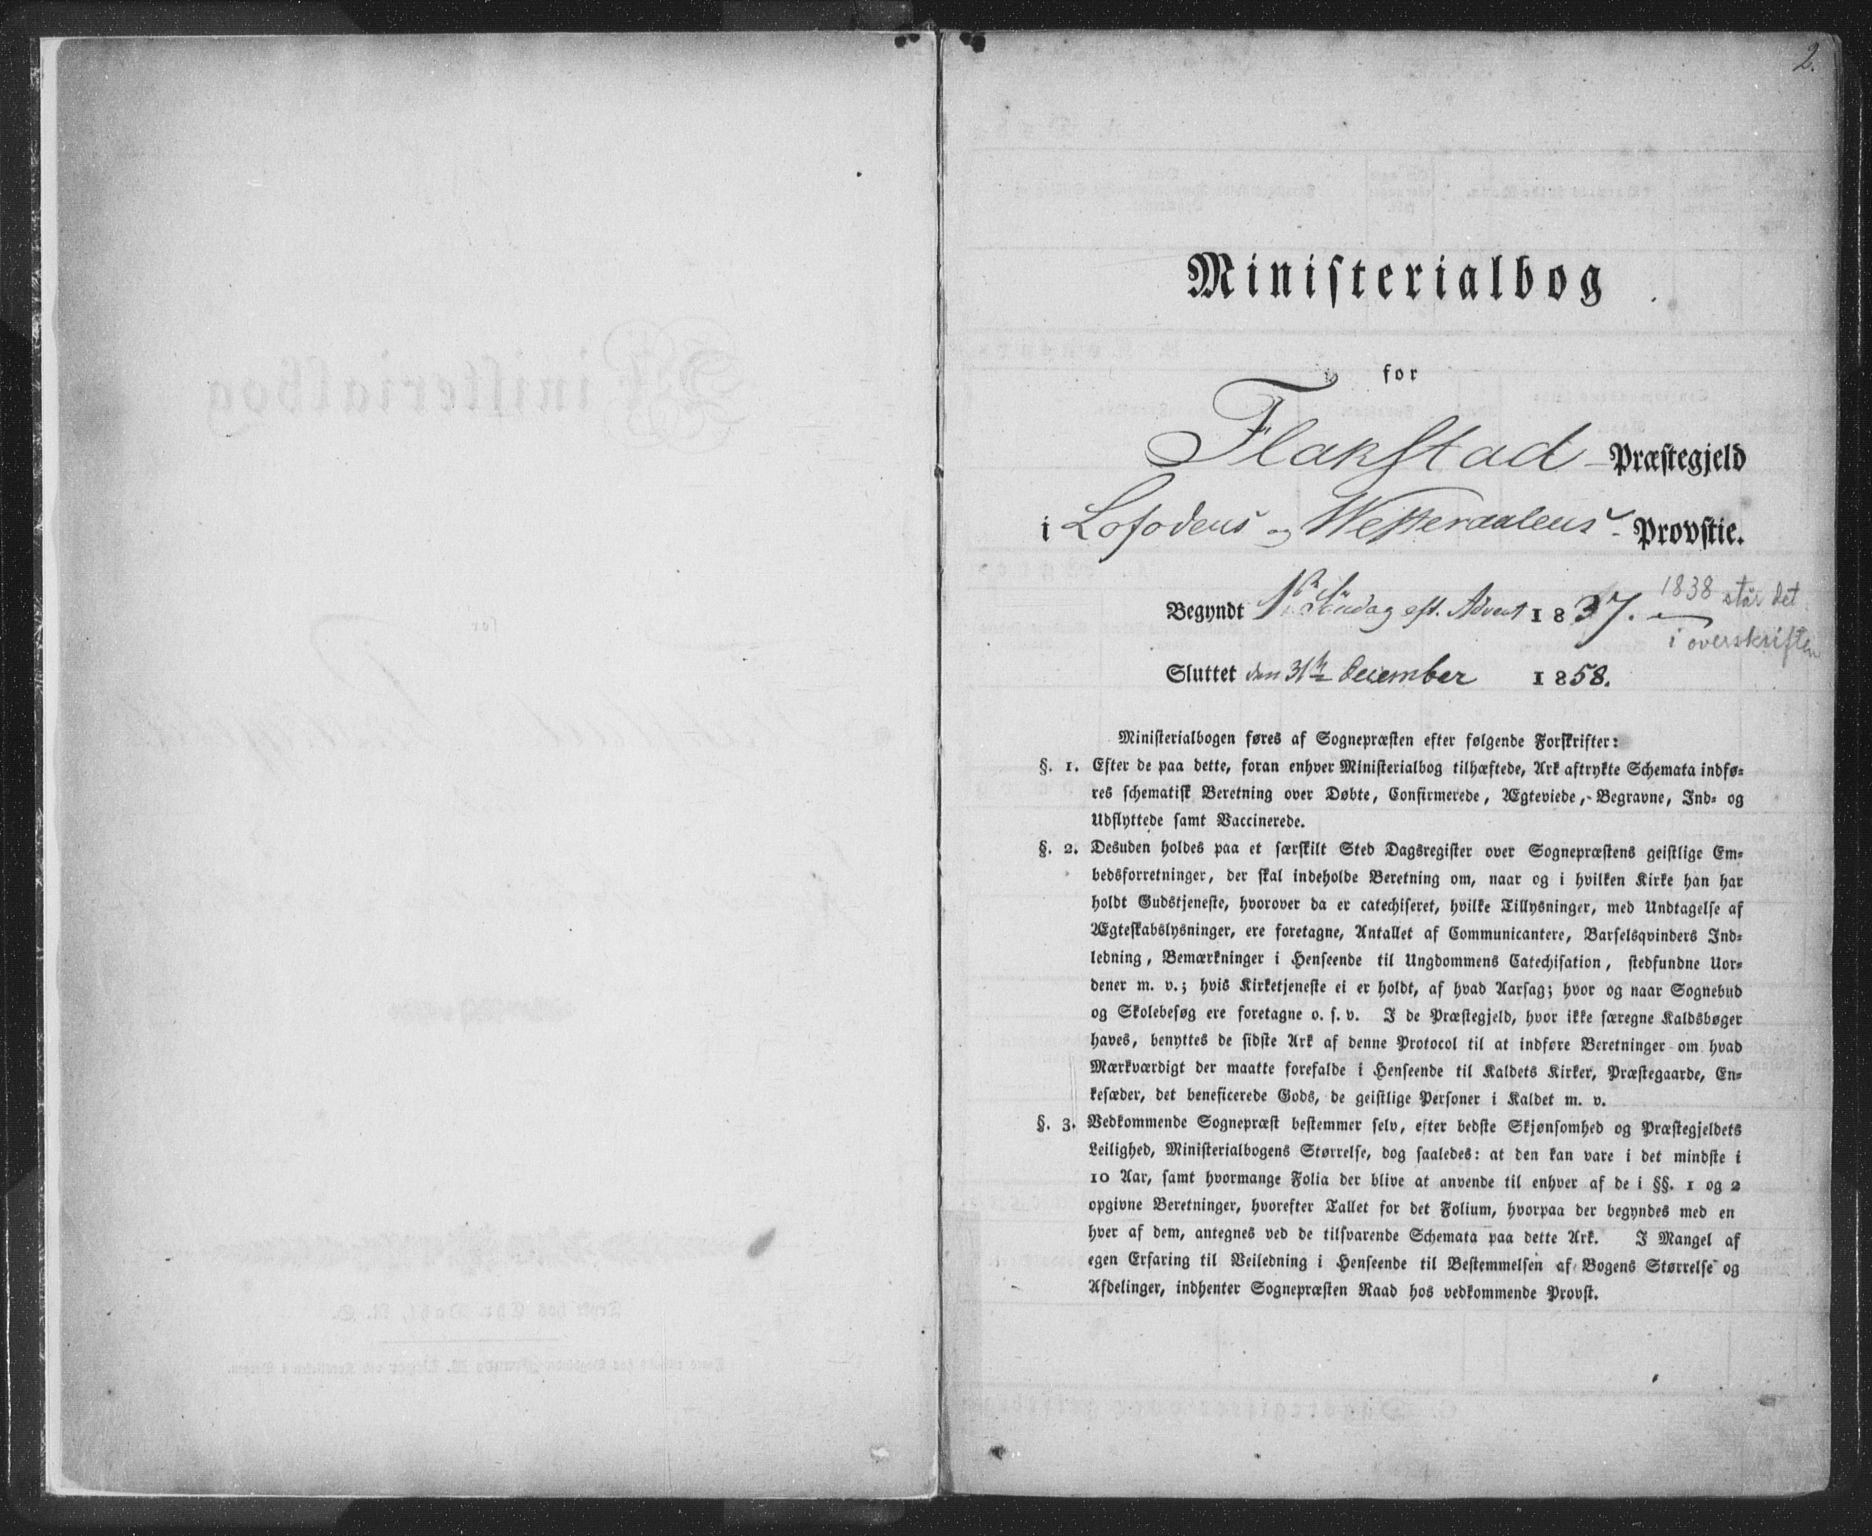 2.
Ministerialbog
for
Flakstad Præstegjeld
i Lofodens og Westeraalens Provstie.
Begyndt 1ste Søndag eft. Advent 1837. 1838 står det
i overskriften
Sluttet den 31te December 1858.
Ministerialbogen føres af Sognepræsten efter følgende Forskrifter:
§. 1. Efter de paa dette, foran enhver Ministerialbog tilhæftede, Ark aftrykte Schemata indfø-
res schematisk Beretning over Døbte, Confirmerede, Ægteviede, Begravne, Ind- og
Udflyttede samt Vaccinerede.
§. 2. Desuden holdes paa et særskilt Sted Dagsregister over Sognepræstens geistlige Em-
bedsforretninger, der skal indeholde Beretning om, naar og i hvilken Kirke han har
holdt Gudstjeneste, hvorover da er catechiseret, hvilke Tillysninger, med Undtagelse af
Ægteskabslysninger, ere foretagne, Antallet af Communicantere, Barselsqvinders Ind-
ledning, Bemærkninger i Henseende til Ungdommens Catechisation, stedfundne Uor-
dener m. v.; hvis Kirketjeneste ei er holdt, af hvad Aarsag; hvor og naar Sognebud
og Skolebesøg ere foretagne o. s. v. I de Præstegjeld, hvor ikke særegne Kaldsbøger
haves, benyttes de sidste Ark af denne Protocol til at indføre Beretninger om hvad
Mærkværdigt der maatte forefalde i Henseende til Kaldets Kirker, Præstegaarde, En-
kesæder, det beneficerede Gods, de geistlige Personer i Kaldet m. v.
§. 3. Vedkommende Sognepræst bestemmer selv, efter bedste Skjønsomhed og Præstegjeldets
Leilighed, Ministerialbogens Størrelse, dog saaledes: at den kan vare i det mindste i
10 Aar, samt hvormange Folia der blive at anvende til enhver af de i §§. 1 og 2
opgivne Beretninger, hvorefter Tallet for det Folium, hvorpaa der begyndes med en
hver af dem, antegnes ved de tilsvarende Schemata paa dette Ark. I Mangel af
egen Erfaring til Veiledning i Henseende til Bestemmelsen af Bogens Størrelse og
Afdelinger, indhenter Sognepræsten Raad hos vedkommende Provst.